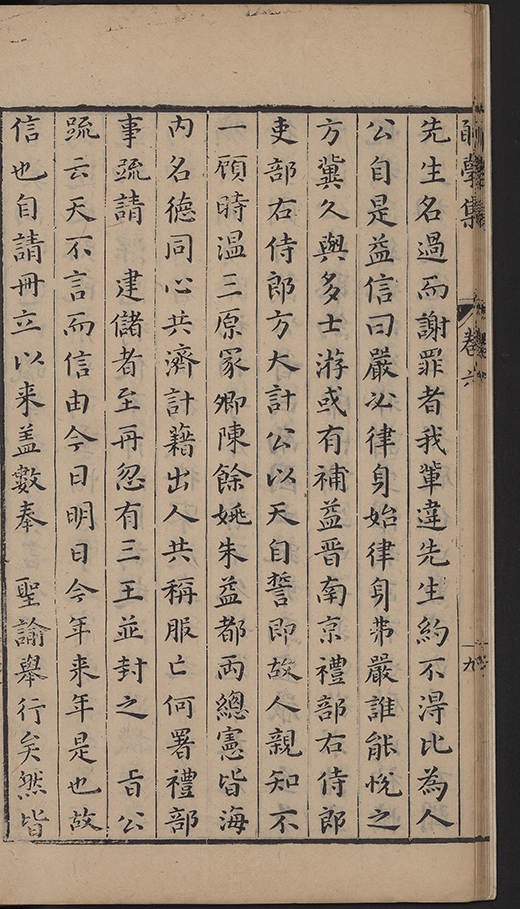 先生名過而謝罪者我軰違先生約不淂比為人
公自是益信曰嚴必律身始律身弗嚴誰能悅之
方冀久與多士游或有補益晋南京禮部右侍郎
吏部右侍郎方大計公以天自誓即故人親知不
一顾時温三原冢卿陳餘姚朱益都兩總憲皆海
内名德同心共濟計藉出人共稱服亡何署禮部
事疏請　建儲者至再忽有三王並封之　旨公
疏云天不言而信由今日明日今年来年是也故
信也自請冊立以来盖數奉　聖諭舉行矣然皆
卷六
九